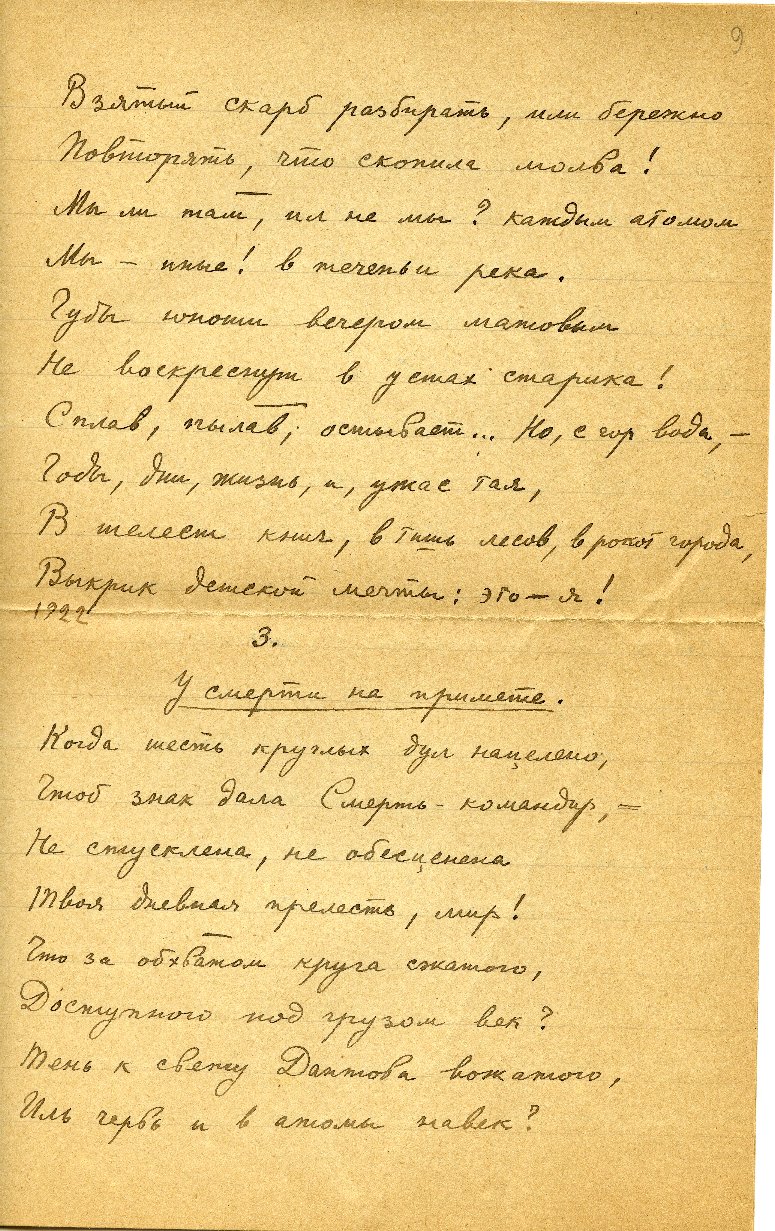 9
Взятый скарб разбирать, или бережно
Повторять, что скопила молва!
Мы ли там, ил не мы? каждым атомом
Мы – иные! в теченьи река.
Губы юноши вечером матовым
Не воскреснут в устах старика!
Сплав, пылав, остывает... Но, с гор вода, –
Годы, дни, жизнь, и, ужас тая,
В шелест книг, в тишь лесов, в рокот города,
Выкрик детской мечты: это – я!
1922
3.
У смерти на примете.
Когда шесть круглых дул нацелено,
Чтоб знак дала Смерть-командир, –
Не стусклена, не обесценена
Твоя дневная прелесть, мир!
Что за обхватом круга сжатого,
Доступного под грузом век?
Тень к свету Дантова вожатого,
Иль червь и в атомы навек?